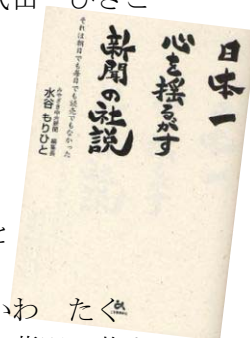 日本一
心を揺るがす
新聞の社説
それは朝日でも毎日でも読売でもなかった
みやざき中央新聞 編集長
水谷 もりひと
ひさこ
わ たく